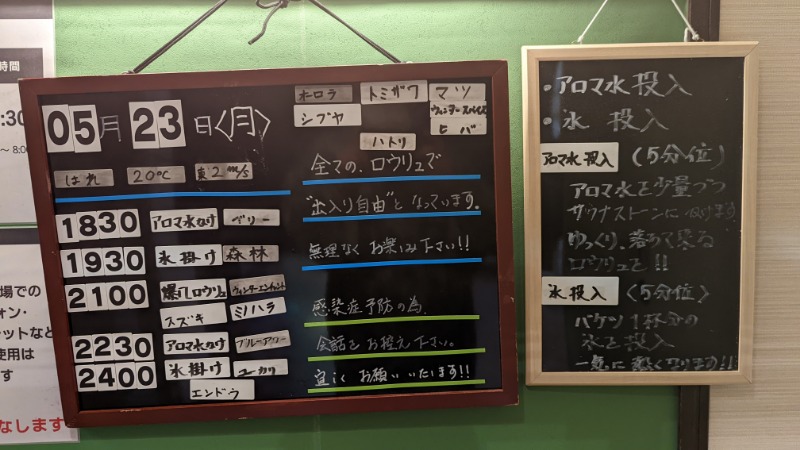 時間
:30
～ 8:0
05月 23日〈月〉
はれ 20℃ 東2m/s
1830 アロマ水かけ ベリー
1930 氷掛け 森林
2100 爆風ロウリュ
スズキ ミノハラ
2230 アロマ水かけ ブルーアワー
2400 氷掛け ユーカリ
エンドウ
ホーロラ トミザワ マツ
シブヤ ヒバ
ハトリ
全ての、ロウリュで
"出入り自由"となっています。
無理なく お楽しみ下さい!!
感染症予防の為、
会話を お控え下さい。
宜しく お願い いたします!!
・アロマ水 投入
・氷 投入
アロマ水投入 (5分位)
アロマ水を少量づつ
サウナストーンに かけます
ゆっくり、落ち
ロウリュで!!
氷投入 〈5分位〉
バケツ1杯分の
氷を投入
一気に 熱くなります!!
場での
ォン・
ットなど
使用は
す
なします